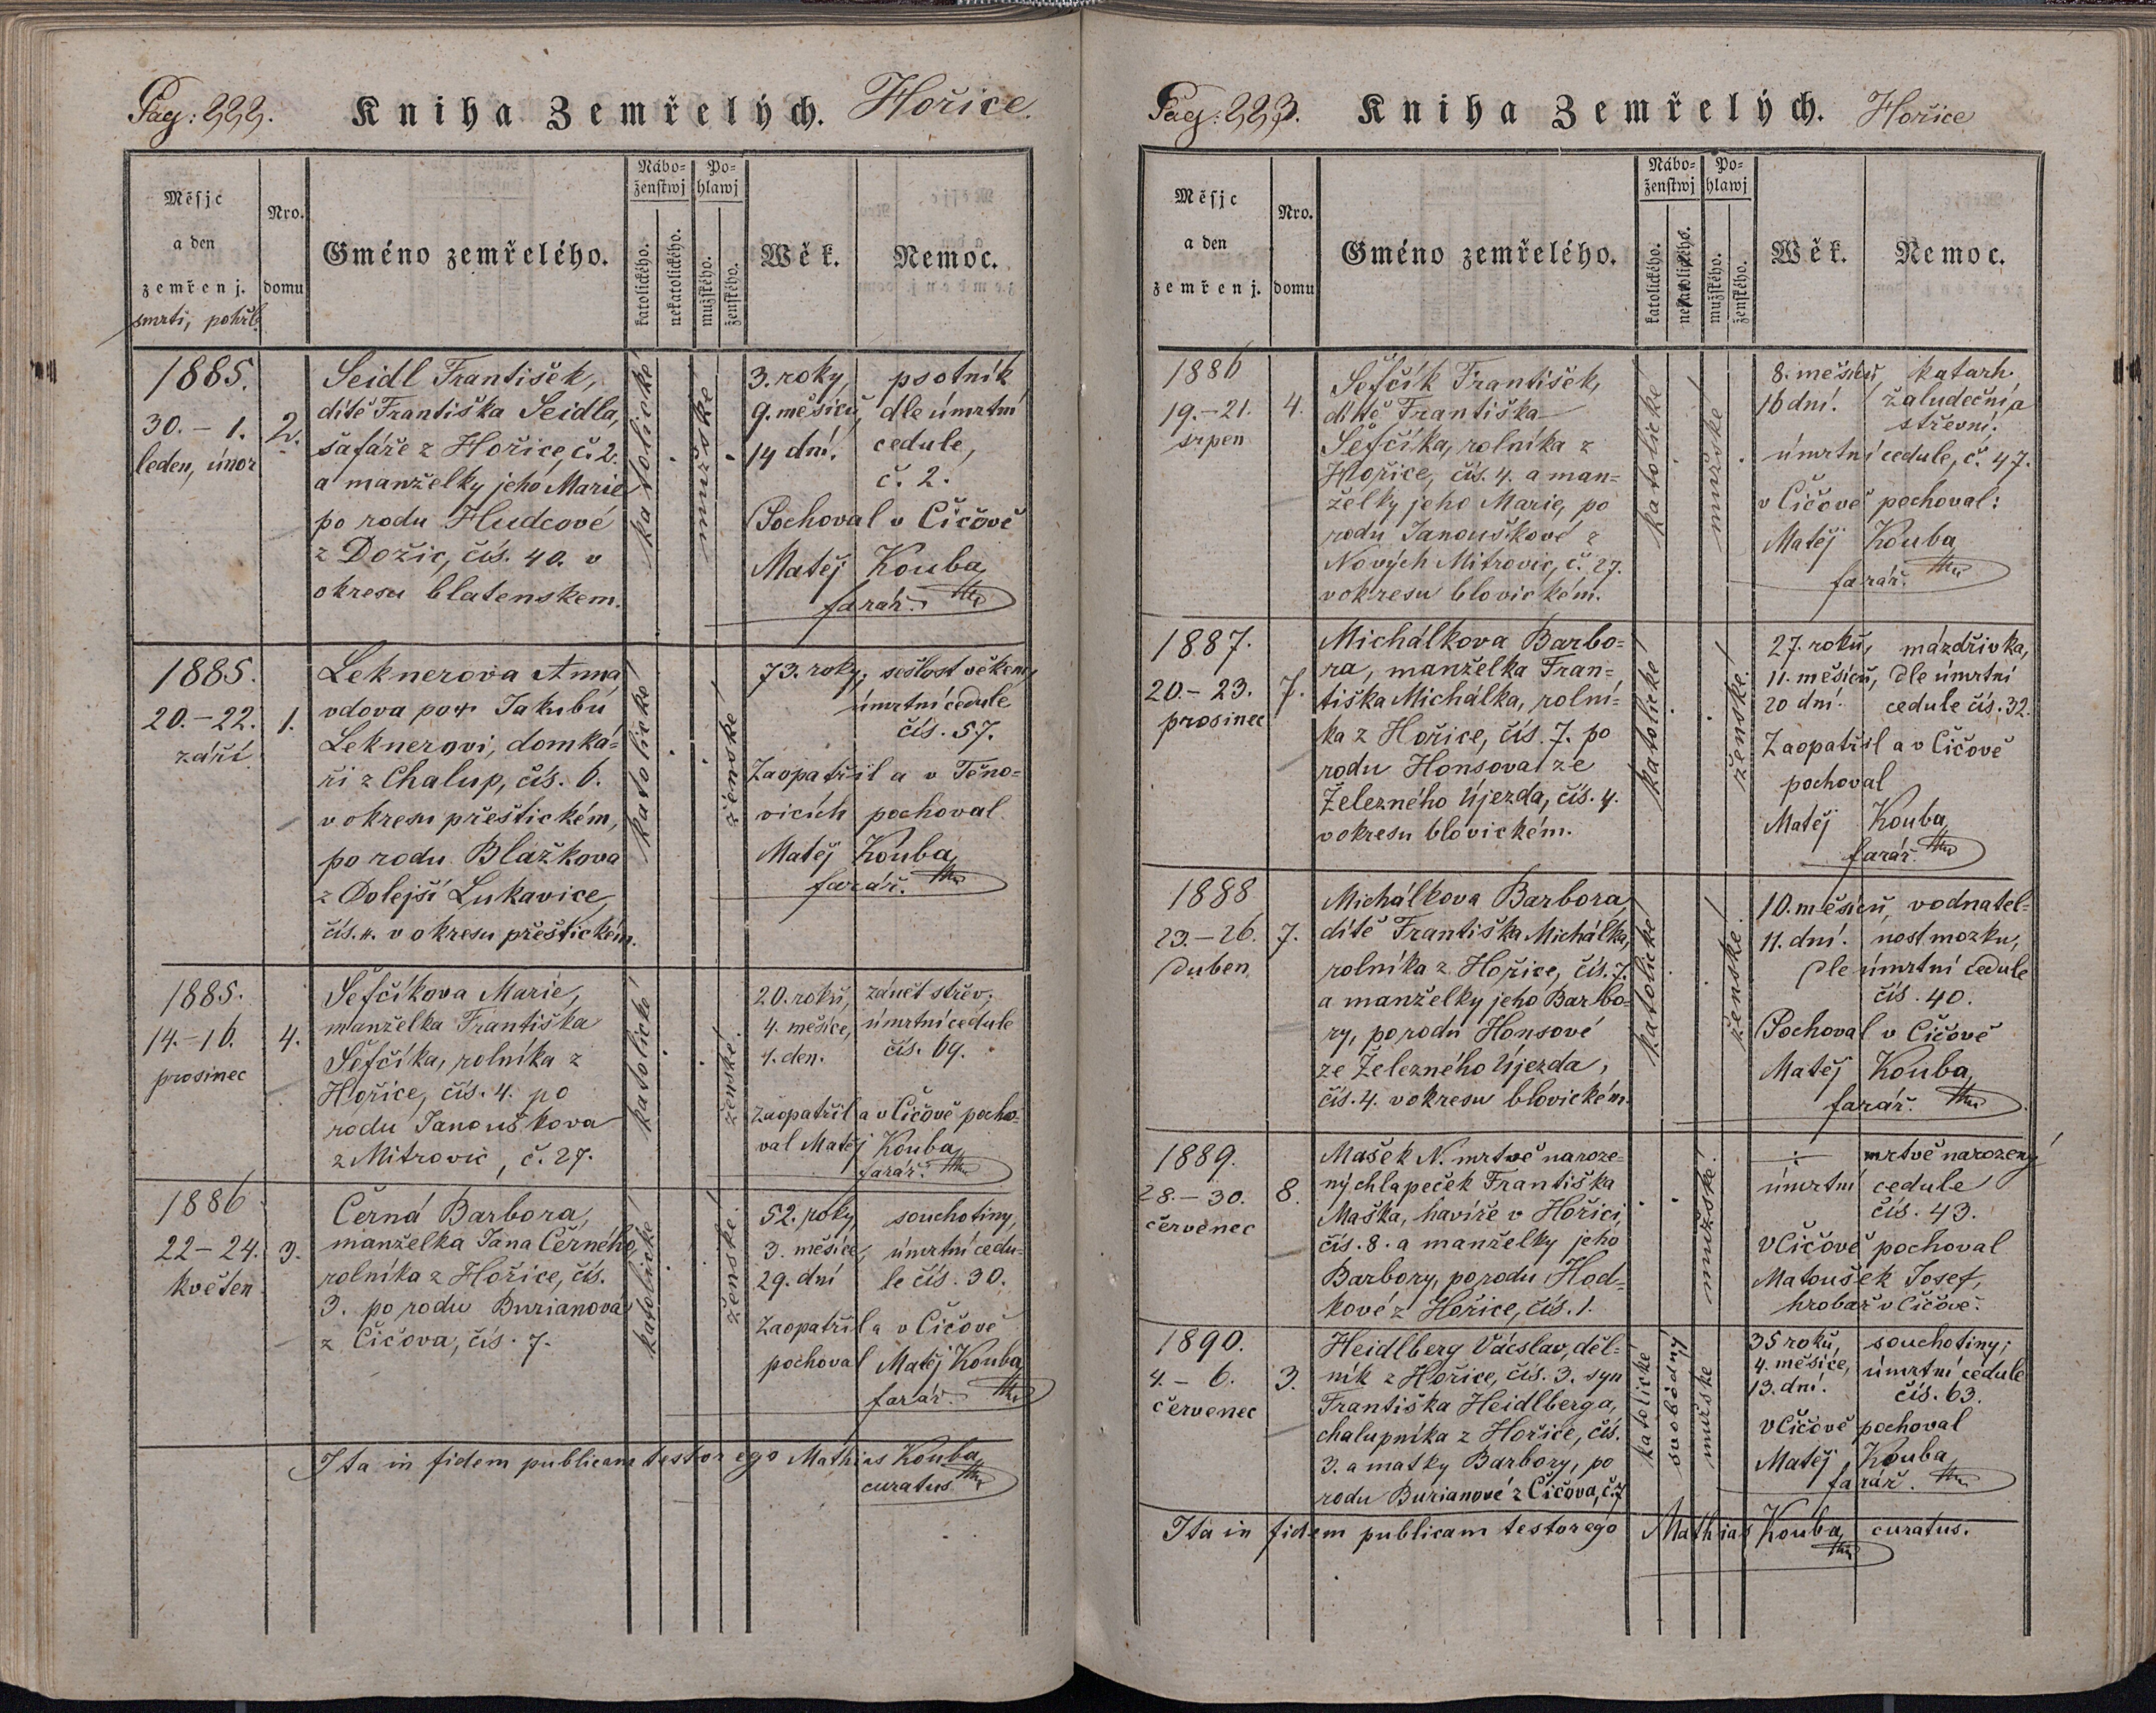 Pag: 222. Kniha Zemřelých. Hořice.
Měsjc a den zemřenj. smrti, pohřb
Nro. domu
Gméno zemřelého.
Nábo=ženstwj
katolického. nekatolického.
Po=hlawj
mužského. ženského.
Wěk.
Nemoc.
1885.
30. – 1.
leden, únor
2.
Seidl František,
dítě Františka Seidla,
šafáře z Hořice, č. 2.
a manželky jeho Marie
po rodu Hudcové
z Dožic, čís. 40. v
okresu blatenskem.
katolické
mužské
3. roky,
9. měsíců,
14 dní.
psotník
dle úmrtní
cedule,
č. 2.
Pochoval v Číčově
Matěj Kouba,
farář.
1885.
20. – 22.
září
1.
Leknerova Anna
vdova po † Jakubu
Leknerovi, domká-
ři z Chalup, čís. 6.
v okresu přeštickém,
po rodu Blažkova
z Dolejší Lukavice,
čís. 11. v okresu přeštickém.
katolické
ženské
73. roky,
sešlost věkem,
úmrtní cedule
čís. 57.
Zaopatřil a v Těno-
vicích pochoval
Matěj Kouba,
farář.
1885.
14. – 16.
prosinec
4.
Šefčíkova Marie,
manželka Františka
Šefčíka, rolníka z
Hořice, čís. 4. po
rodu Janouškova
z Mitrovic, č. 27.
katolické
ženské.
20. roků,
4. měsíce,
1. den.
zánět střev;
úmrtní cedule
čís. 69.
Zaopatřil a v Číčově pocho-
val Matěj Kouba,
farář.
1886
22 – 24.
květen
3.
Černá Barbora,
manželka Jana Černého,
rolníka z Hořice, čís.
3. po rodu Burianová
z Číčova, čís. 7.
katolické
ženské.
52. roky,
3. měsíce,
29. dní
souchotiny,
úmrtní cedu-
le čís. 30.
Zaopatřil a v Číčově
pochoval Matěj Kouba,
farář.
Ita in fidem publicam testor ego Mathias Kouba,
curatus
Pag: 223. Kniha Zemřelých. Hořice
Měsjc a den zemřenj.
Nro. domu
Gméno zemřelého.
Nábo=ženstwj
katolického. nekatolického.
Po=hlawj
mužského. ženského.
Wěk.
Nemoc.
1886
19. – 21.
srpen
4.
Šefčík František,
dítě Františka
Šefčíka, rolníka z
Hořice, čís. 4. a man=
želky jeho Marie, po
rodu Janouškové z
Nových Mitrovic, č. 27.
v okresu blovickém.
katolické
mužské
8. měsíců,
16 dní.
katarh.
žaludeční a
střevní.
úmrtní cedule, č. 47.
v Číčově pochoval:
Matěj Kouba,
farář.
1887.
20. – 23.
prosinec
7.
Michálkova Barbo=
ra, manželka Fran=
tiška Michálka, rolní=
ka z Hořice, čís. 7. po
rodu Honsova ze
Železného Újezda, čís. 4.
v okresu blovickém.
katolické
ženské.
27. roků,
11. měsíců,
20 dní.
mázdřivka,
dle úmrtní
cedule čís. 32.
Zaopatřil a v Číčově
pochoval
Matěj Kouba,
farář.
1888
23. – 26.
duben
7.
Michálkova Barbora,
dítě Františka Michálka,
rolníka z Hořice, čís. 7.
a manželky jeho Barbo-
ry, po rodu Honsové
ze Železného Újezda,
čís. 4. v okresu blovickém.
katolické
ženské.
10. měsíců,
11. dní.
vodnatel=
nost mozku,
dle úmrtní cedule
čís. 40.
Pochoval v Číčově
Matěj Kouba,
farář.
1889.
28. – 30.
červenec
8.
Mašek N. mrtvě naroze-
ný chlapeček Františka
Maška, havíře v Hořici,
čís. 8. a manželky jeho
Barbory, po rodu Hod-
kové z Hořice, čís. 1.
mužské.
mrtvě narozený
úmrtní cedule
čís. 43.
V Číčově pochoval
Matoušek Josef,
hrobař v Číčově.
1890.
4. – 6.
červenec
3.
Heidlberg Vácslav, děl-
ník z Hořice, čís. 3. syn
Františka Heidlberga,
chalupníka z Hořice, čís.
3. a matky Barbory, po
rodu Burianové z Číčova, č. 7
katolické
svobodný
mužské
35 roků,
4. měsíce,
13. dní.
souchotiny;
úmrtní cedule
čís. 63.
V Číčově pochoval
Matěj Kouba,
farář.
Ita in fidem publicam testor ego Mathias Kouba, curatus.